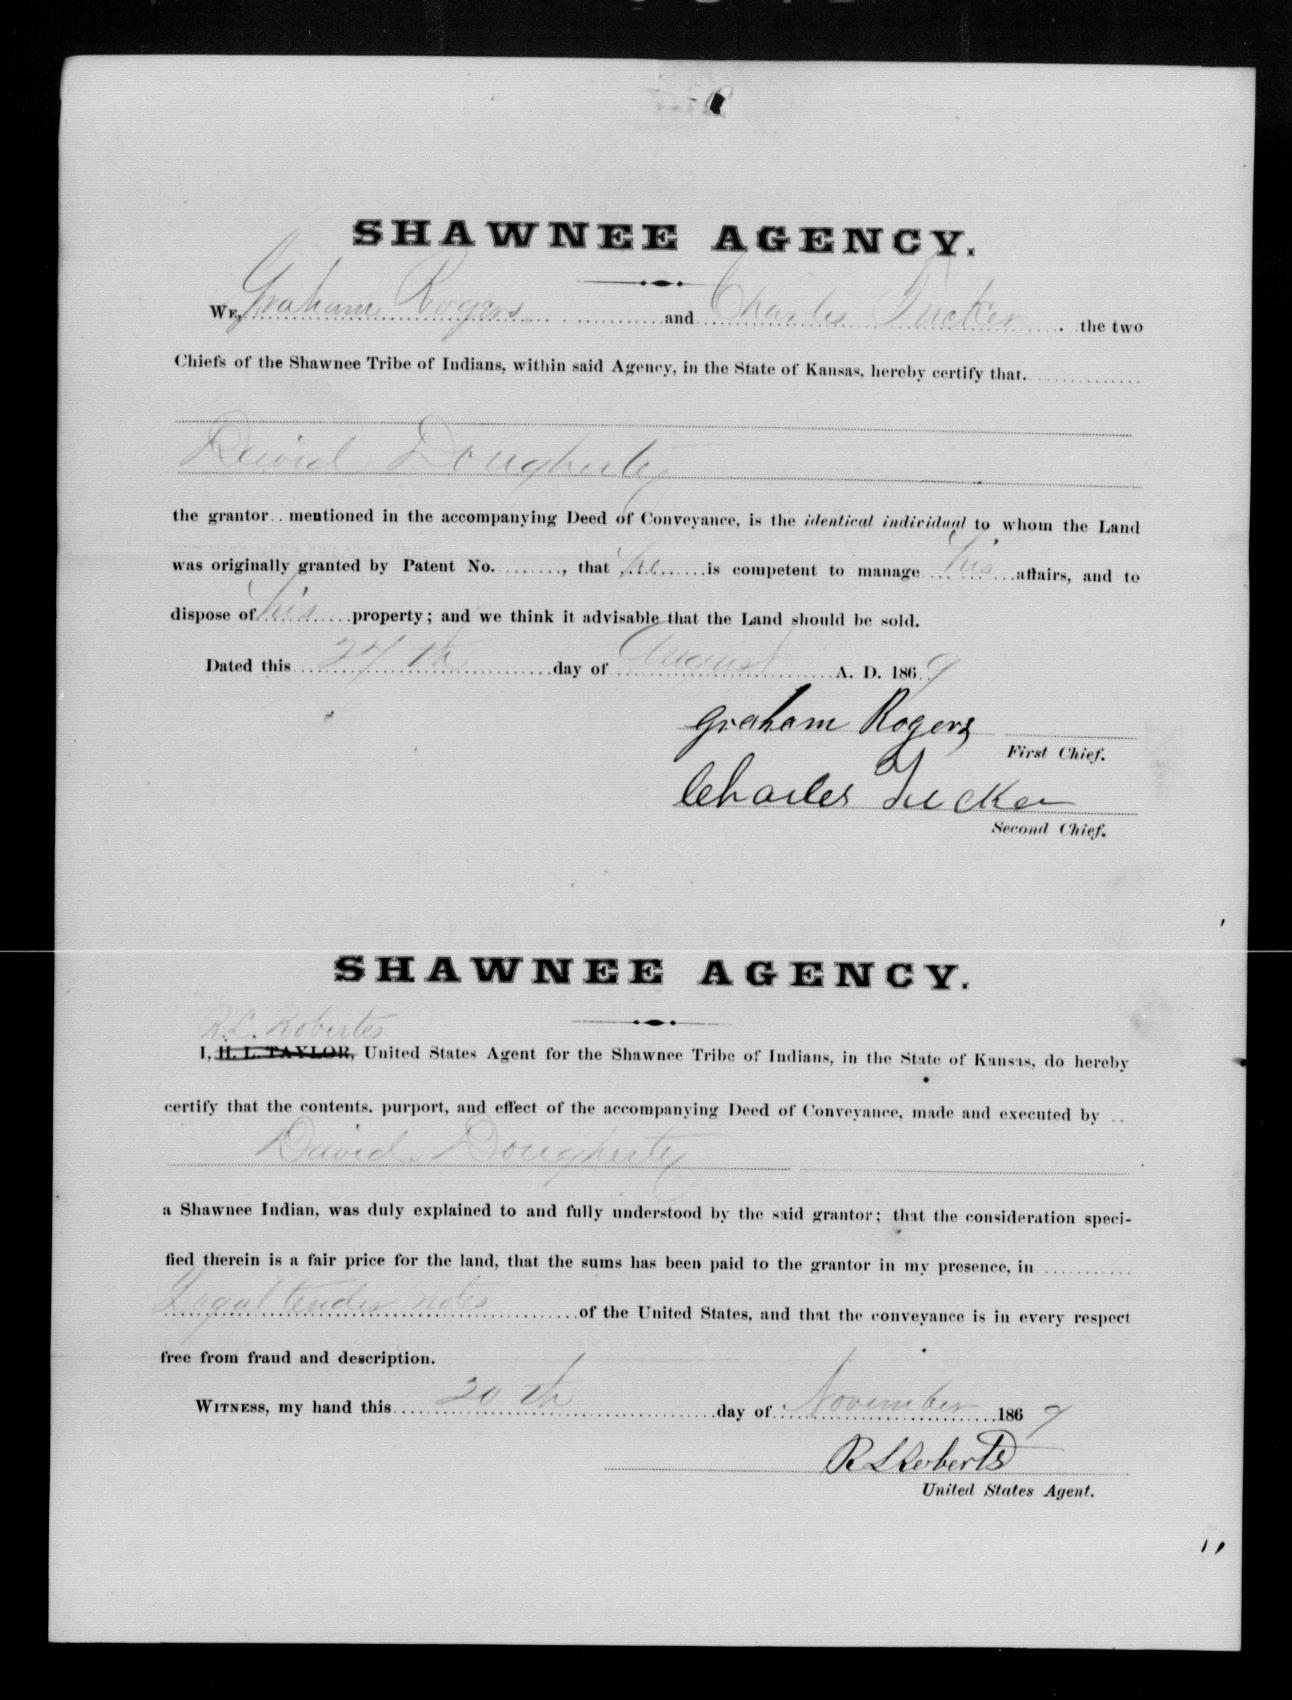 SHAWNEE AGENCY.
WE, Graham Rogers and Charles Tucker the two
Chiefs of the Shawnee Tribe of Indians, within said Agency, in the State of Kansas, hereby certify that
David Dougherty
the grantor mentioned in the accompanying Deed of Conveyance, is the identical individual to whom the Land
was originally granted by Patent No. ........, that he is competent to manage his affairs, and to
dispose of his property; and we think it advisable that the Land should be sold.
Dated this 24th day of August A. D. 1869
Graham Rogers
First Chief.
Charles Tucker
Second Chief.
SHAWNEE AGENCY.
R. L. Roberts
I, H. L. TAYLOR, United States Agent for the Shawnee Tribe of Indians, in the State of Kansas, do hereby
certify that the contents, purport, and effect of the accompanying Deed of Conveyance, made and executed by
David Dougherty
a Shawnee Indian, was duly explained to and fully understood by the said grantor; that the consideration speci-
fied therein is a fair price for the land, that the sums has been paid to the grantor in my presence, in
Legal tender notes of the United States, and that the conveyance is in every respect
free from fraud and description.
WITNESS, my hand this 20th day of November 1869
R L Roberts
United States Agent.